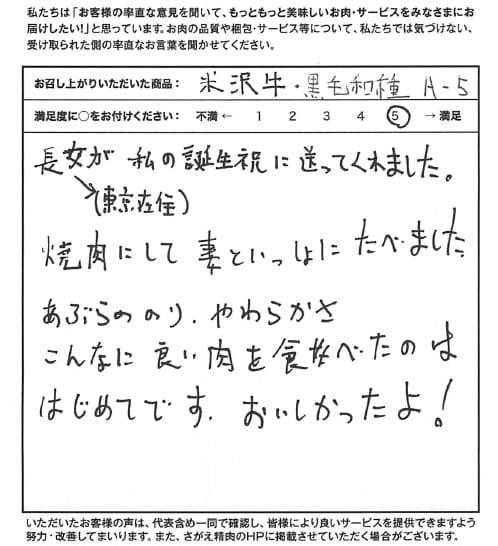 私たちは「お客様の率直な意見を聞いて、もっともっと美味しいお肉・サービスをみなさまにお
届けしたい!」と思っています。お肉の品質や梱包・サービス等について、私たちでは気づけない、
受け取られた側の率直なお言葉を聞かせてください。
お召し上がりいただいた商品： 米沢牛・黒毛和種 A-5
満足度に○をお付けください： 不満 ← 1 2 3 4 5 → 満足
長女が 私の誕生祝に送ってくれました。
(東京在住)
焼肉にして 妻といっしょに たべました
あぶらののり、やわらかさ
こんなに 良い肉を食べたのは
はじめてです. おいしかったよ!
いただいたお客様の声は、代表含め一同で確認し、皆様により良いサービスを提供できますよう
努力・改善してまいります。また、さがえ精肉のHPに掲載させていただく場合がございます。